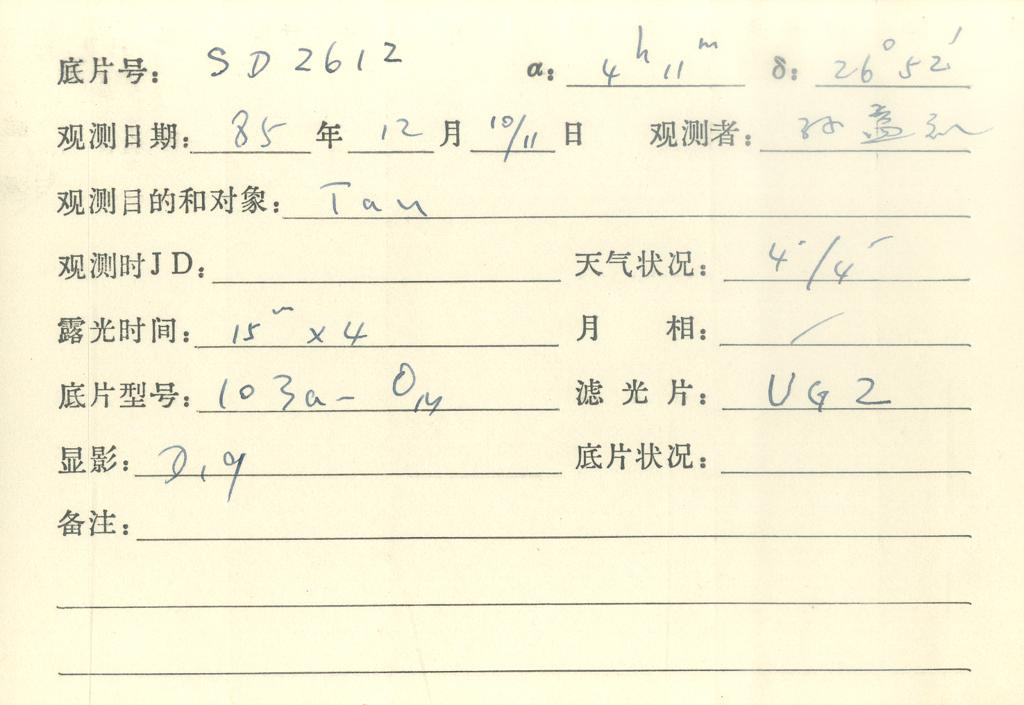 底片号: SD2612 α: 4ʰ 11ᵐ δ: 26°52′
观测日期: 85 年 12 月 10/11 日 观测者: 孙
观测目的和对象: Tau
观测时JD: 天气状况: 4-/4-
露光时间: 15ᵐ×4 月 相: /
底片型号: 103a-O 滤光片: UG2
显影: D19 底片状况:
备注: